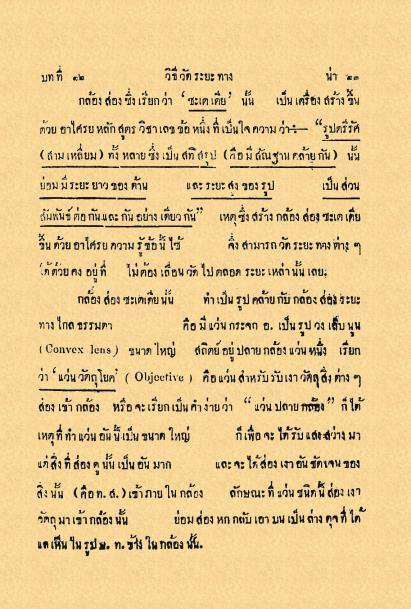 บทที่ ๔๒ วิธีวัดระยะทาง น่า ๔๓
กล้องส่องซึ่งเรียกว่า ‘ซะเตเดีย’ นั้น เป็นเครื่องสร้างขึ้น
ด้วยอาไศรยหลักสูตรวิชาเลขข้อหนึ่งที่เป็นใจความว่า:— “รูปตรีรัศ
(สามเหลี่ยม) ทั้งหลายซึ่งเป็นสทิสรูป (คือมีสัณฐานคล้ายกัน) นั้น
ย่อมมีระยะยาวของด้าน และระยะสูงของรูป เป็นส่วน
สัมพันธ์ต่อกันและกันอย่างเดียวกัน” เหตุซึ่งสร้างกล้องส่องซะเตเดีย
ขึ้นด้วยอาไศรยความรู้ข้อนี้ไซ้ จึ่งสามารถวัดระยะทางต่างๆ
ได้ด้วยคงอยู่ที่ ไม่ต้องเลื่อนวัดไปตลอดระยะเหล่านั้นเลย;
กล้องส่องซะเตเดียนั้น ทำเป็นรูปคล้ายกับกล้องส่องระยะ
ทางไกลธรรมดา คือมีแว่นกระจก อ. เป็นรูปวงเส้นนูน
(Convex lens) ขนาดใหญ่ สถิตย์อยู่ปลายกล้องแว่นหนึ่ง เรียก
ว่า ‘แว่นวัตถุโยค’ (Objective) คือแว่นสำหรับรับเงาวัตถุสิ่งต่างๆ
ส่องเข้ากล้อง หรือจะเรียกเป็นคำง่ายว่า “แว่นปลายกล้อง” ก็ได้
เหตุที่ทำแว่นอันนี้เป็นขนาดใหญ่ ก็เพื่อจะได้รับแสงสว่างมา
แต่สิ่งที่ส่องดูนั้นเป็นอันมาก และจะได้ส่องเงาอันชัดเจนของ
สิ่งนั้น (คือ ท. ส.) เข้าภายในกล้อง ลักษณะที่แว่นชนิดนี้ส่องเงา
วัตถุมาเข้ากล้องนั้น ย่อมส่องหกกลับเอาบนเป็นล่าง ดุจที่ได้
แลเห็นในรูป ษ. ท. ข้างในกล้องนั้น.